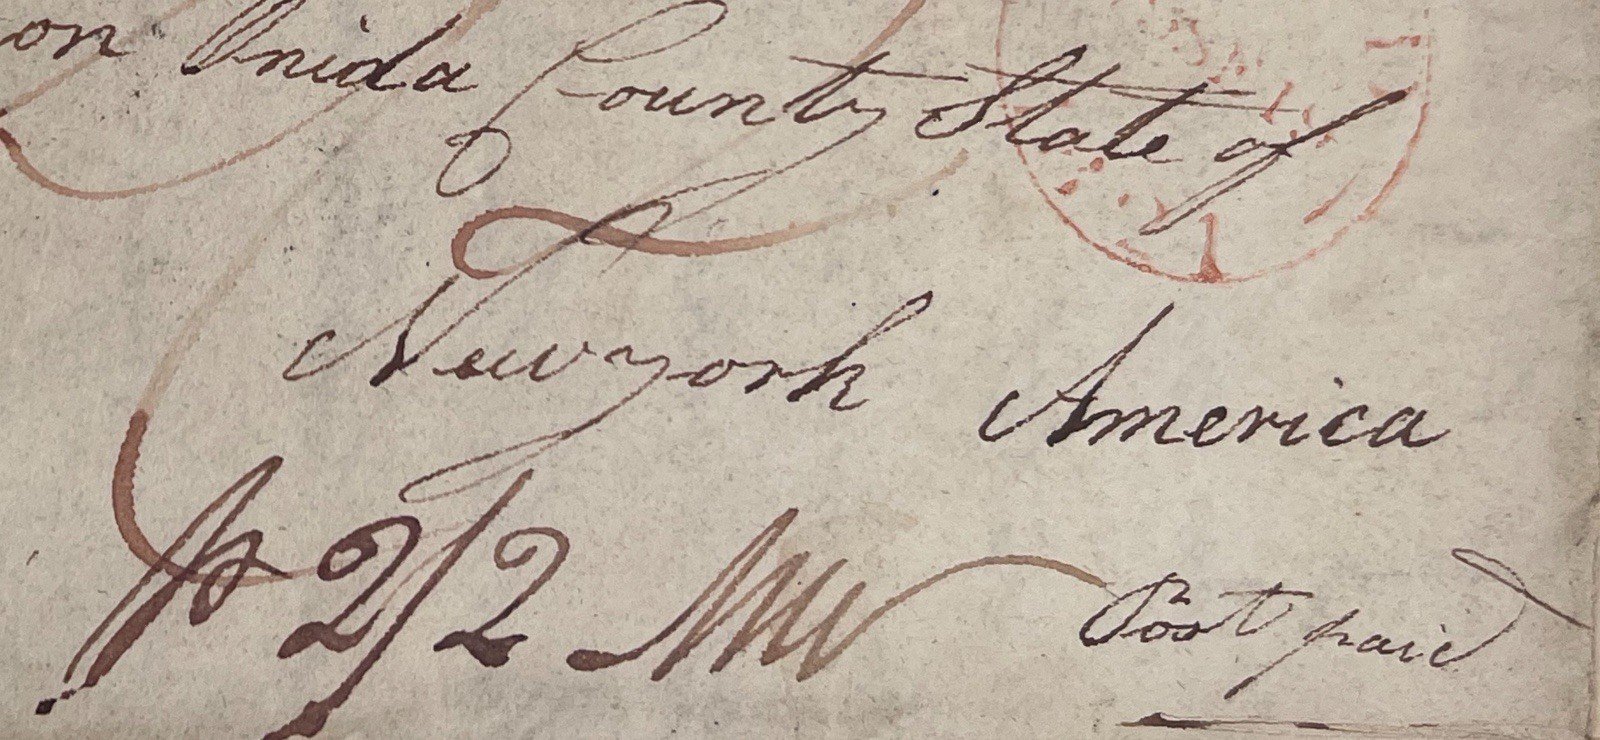 on Onida County State of
Newyork America
P 2/2
Post paid